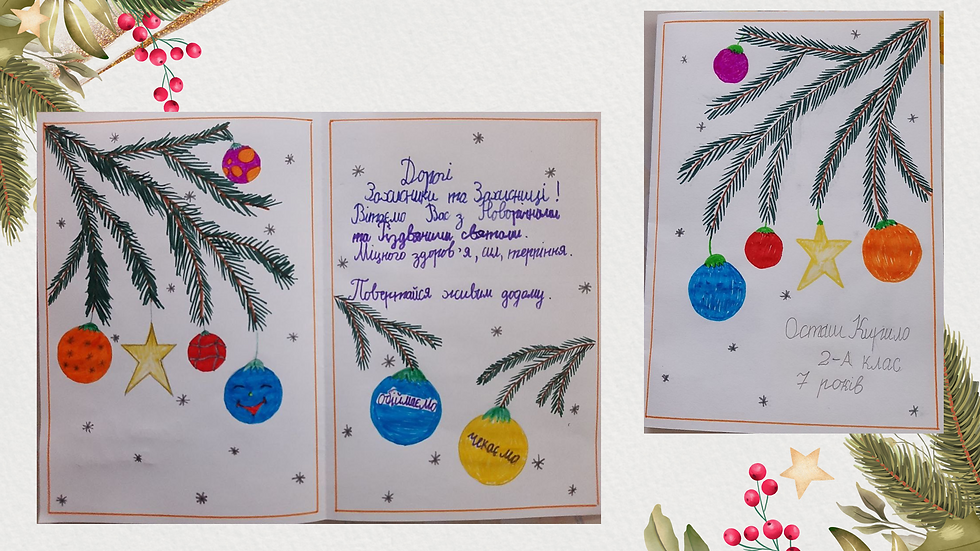 Дорогі
Захисники та Захисниці!
Вітаємо Вас з Новорічними
та Різдвяними святами.
Міцного здоров'я, сил, терпіння.
Повертайся живим додому.
Обіймаємо
чекаємо
Осташ Кирило
2-А клас
7 років